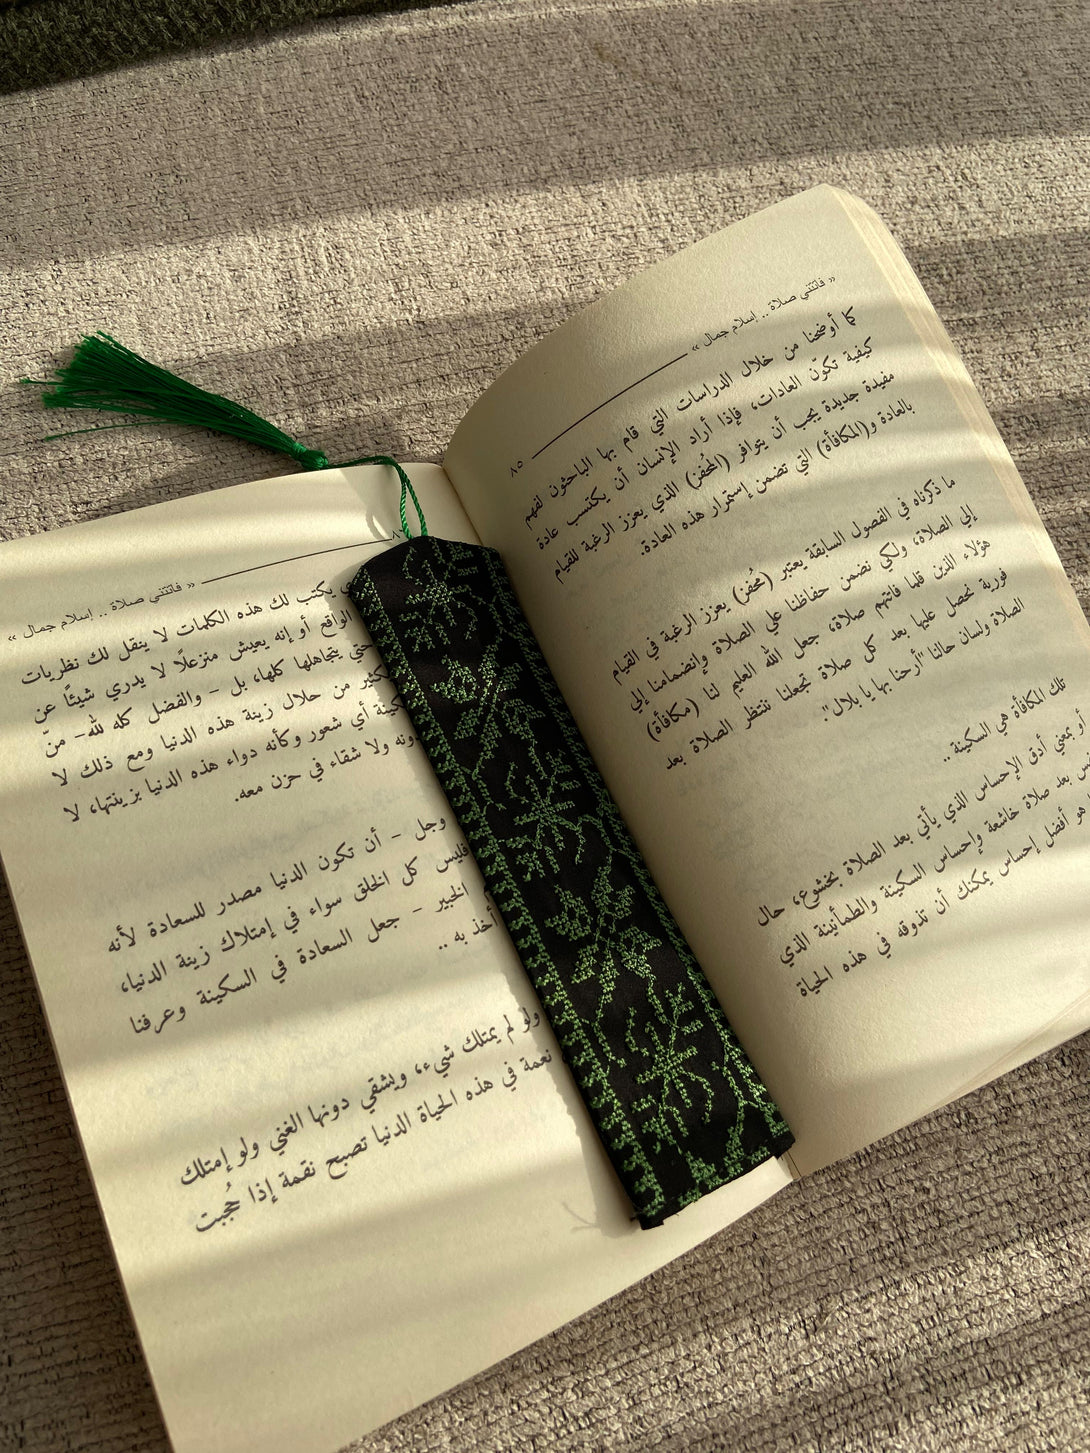 « فاتتني صلاة .. إسلام جمال »
٨٥
كما أوضحنا من خلال الدراسات التي قام بها الباحثون لفهم
كيفية تكوّن العادات، فإذا أراد الإنسان أن يكتسب عادة
مفيدة جديدة يجب أن يتوافر (المُحفز) الذي يعزز الرغبة للقيام
بالعادة و(المكافأة) التي تضمن إستمرار هذه العادة.
ما ذكرناه في الفصول السابقة يعتبر (مُحفز) يعزز الرغبة في القيام
إلي الصلاة، ولكي نضمن حفاظنا علي الصلاة وإنضمامنا إلي
هؤلاء الذين قلما فاتتهم صلاة، جعل الله العليم لنا (مكافأة)
فورية نحصل عليها بعد كل صلاة تجعلنا ننتظر الصلاة بعد
الصلاة ولسان حالنا "أرحنا بها يا بلال".
تلك المكافأة هي السكينة..
أو بمعني أدق الإحساس الذي يأتي بعد الصلاة بخشوع، حال
بعد صلاة خاشعة وإحساس السكينة والطمأنينة الذي
هو أفضل إحساس يمكنك أن تذوقه في هذه الحياة
« فاتتني صلاة .. إسلام جمال »
يكتب لك هذه الكلمات لا ينقل لك نظريات
الواقع أو إنه يعيش منزعلًا لا يدري شيئًا عن
حتي يتجاهلها كلها، بل - والفضل كله لله- منّ
من حلال زينة هذه الدنيا ومع ذلك لا
أي شعور وكأنه دواء هذه الدنيا بزينتها، لا
ولا شقاء في حزن معه.
وجل - أن تكون الدنيا مصدر للسعادة لأنه
فليس كل الخلق سواء في إمتلاك زينة الدنيا،
الخبير - جعل السعادة في السكينة وعرفنا
أخذ به ..
ولو لم يمتلك شيء، ويشقي دونها الغني ولو إمتلك
نعمة في هذه الحياة الدنيا تصبح نقمة إذا حُجبت